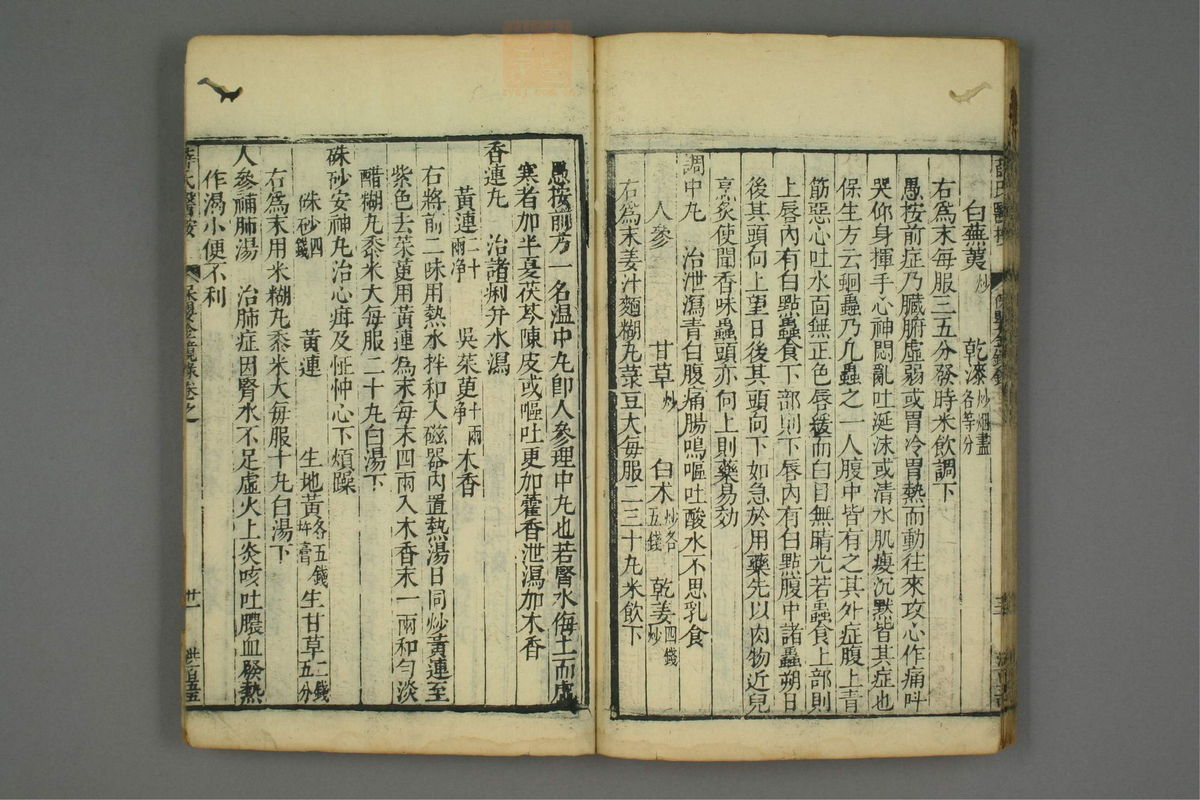 白蕪荑炒 乾漆炒烟盡各等分
右爲末每服三五分發時米飲調下
愚按前症乃臟腑虛弱或胃冷胃熱而動往來攻心作痛叫
哭仰身揮手心神悶亂吐涎沫或清水肌瘦沉默皆其症也
保生方云蛔蟲乃九蟲之一人腹中皆有之其外症腹上青
筋惡心吐水面無正色唇緩而白目無睛光若蟲食上部則
上唇內有白點蟲食下部則下唇內有白點腹中諸蟲朔日
後其頭向上望日後其頭向下如急於用藥先以肉物近兒
烹炙使聞香味蟲頭亦向上則藥易効
調中丸 治泄瀉青白腹痛腸鳴嘔吐酸水不思乳食
人參 甘草炒 白朮炒各五錢 乾姜四錢炒
右爲末姜汁麵糊丸菉豆大每服二三十丸米飲下
愚按前方一名温中丸卽人參理中丸也若腎水侮土而虛
寒者加半夏茯苓陳皮或嘔吐更加藿香泄瀉加木香
香連丸 治諸痢幷水瀉
黃連二十兩净 吳茱萸十兩净 木香
右將前二味用熱水拌和入磁器內置熱湯日同炒黃連至
紫色去茱萸用黃連爲末每末四兩入木香末一兩和勻淡
醋糊丸黍米大每服二十丸白湯下
硃砂安神丸治心疳及怔忡心下煩躁
硃砂四錢 黃連 生地黃各五錢 生甘草二錢五分
右爲末用米糊丸黍米大每服十丸白湯下
人參補肺湯 治肺症因腎水不足虛火上炎咳吐膿血發熱
作渴小便不利
薛氏醫按